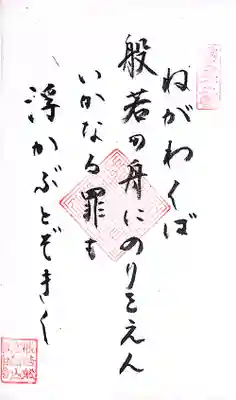 ねがわくば
般若の舟にのりをえん
いかなる罪も
浮かぶとぞきく